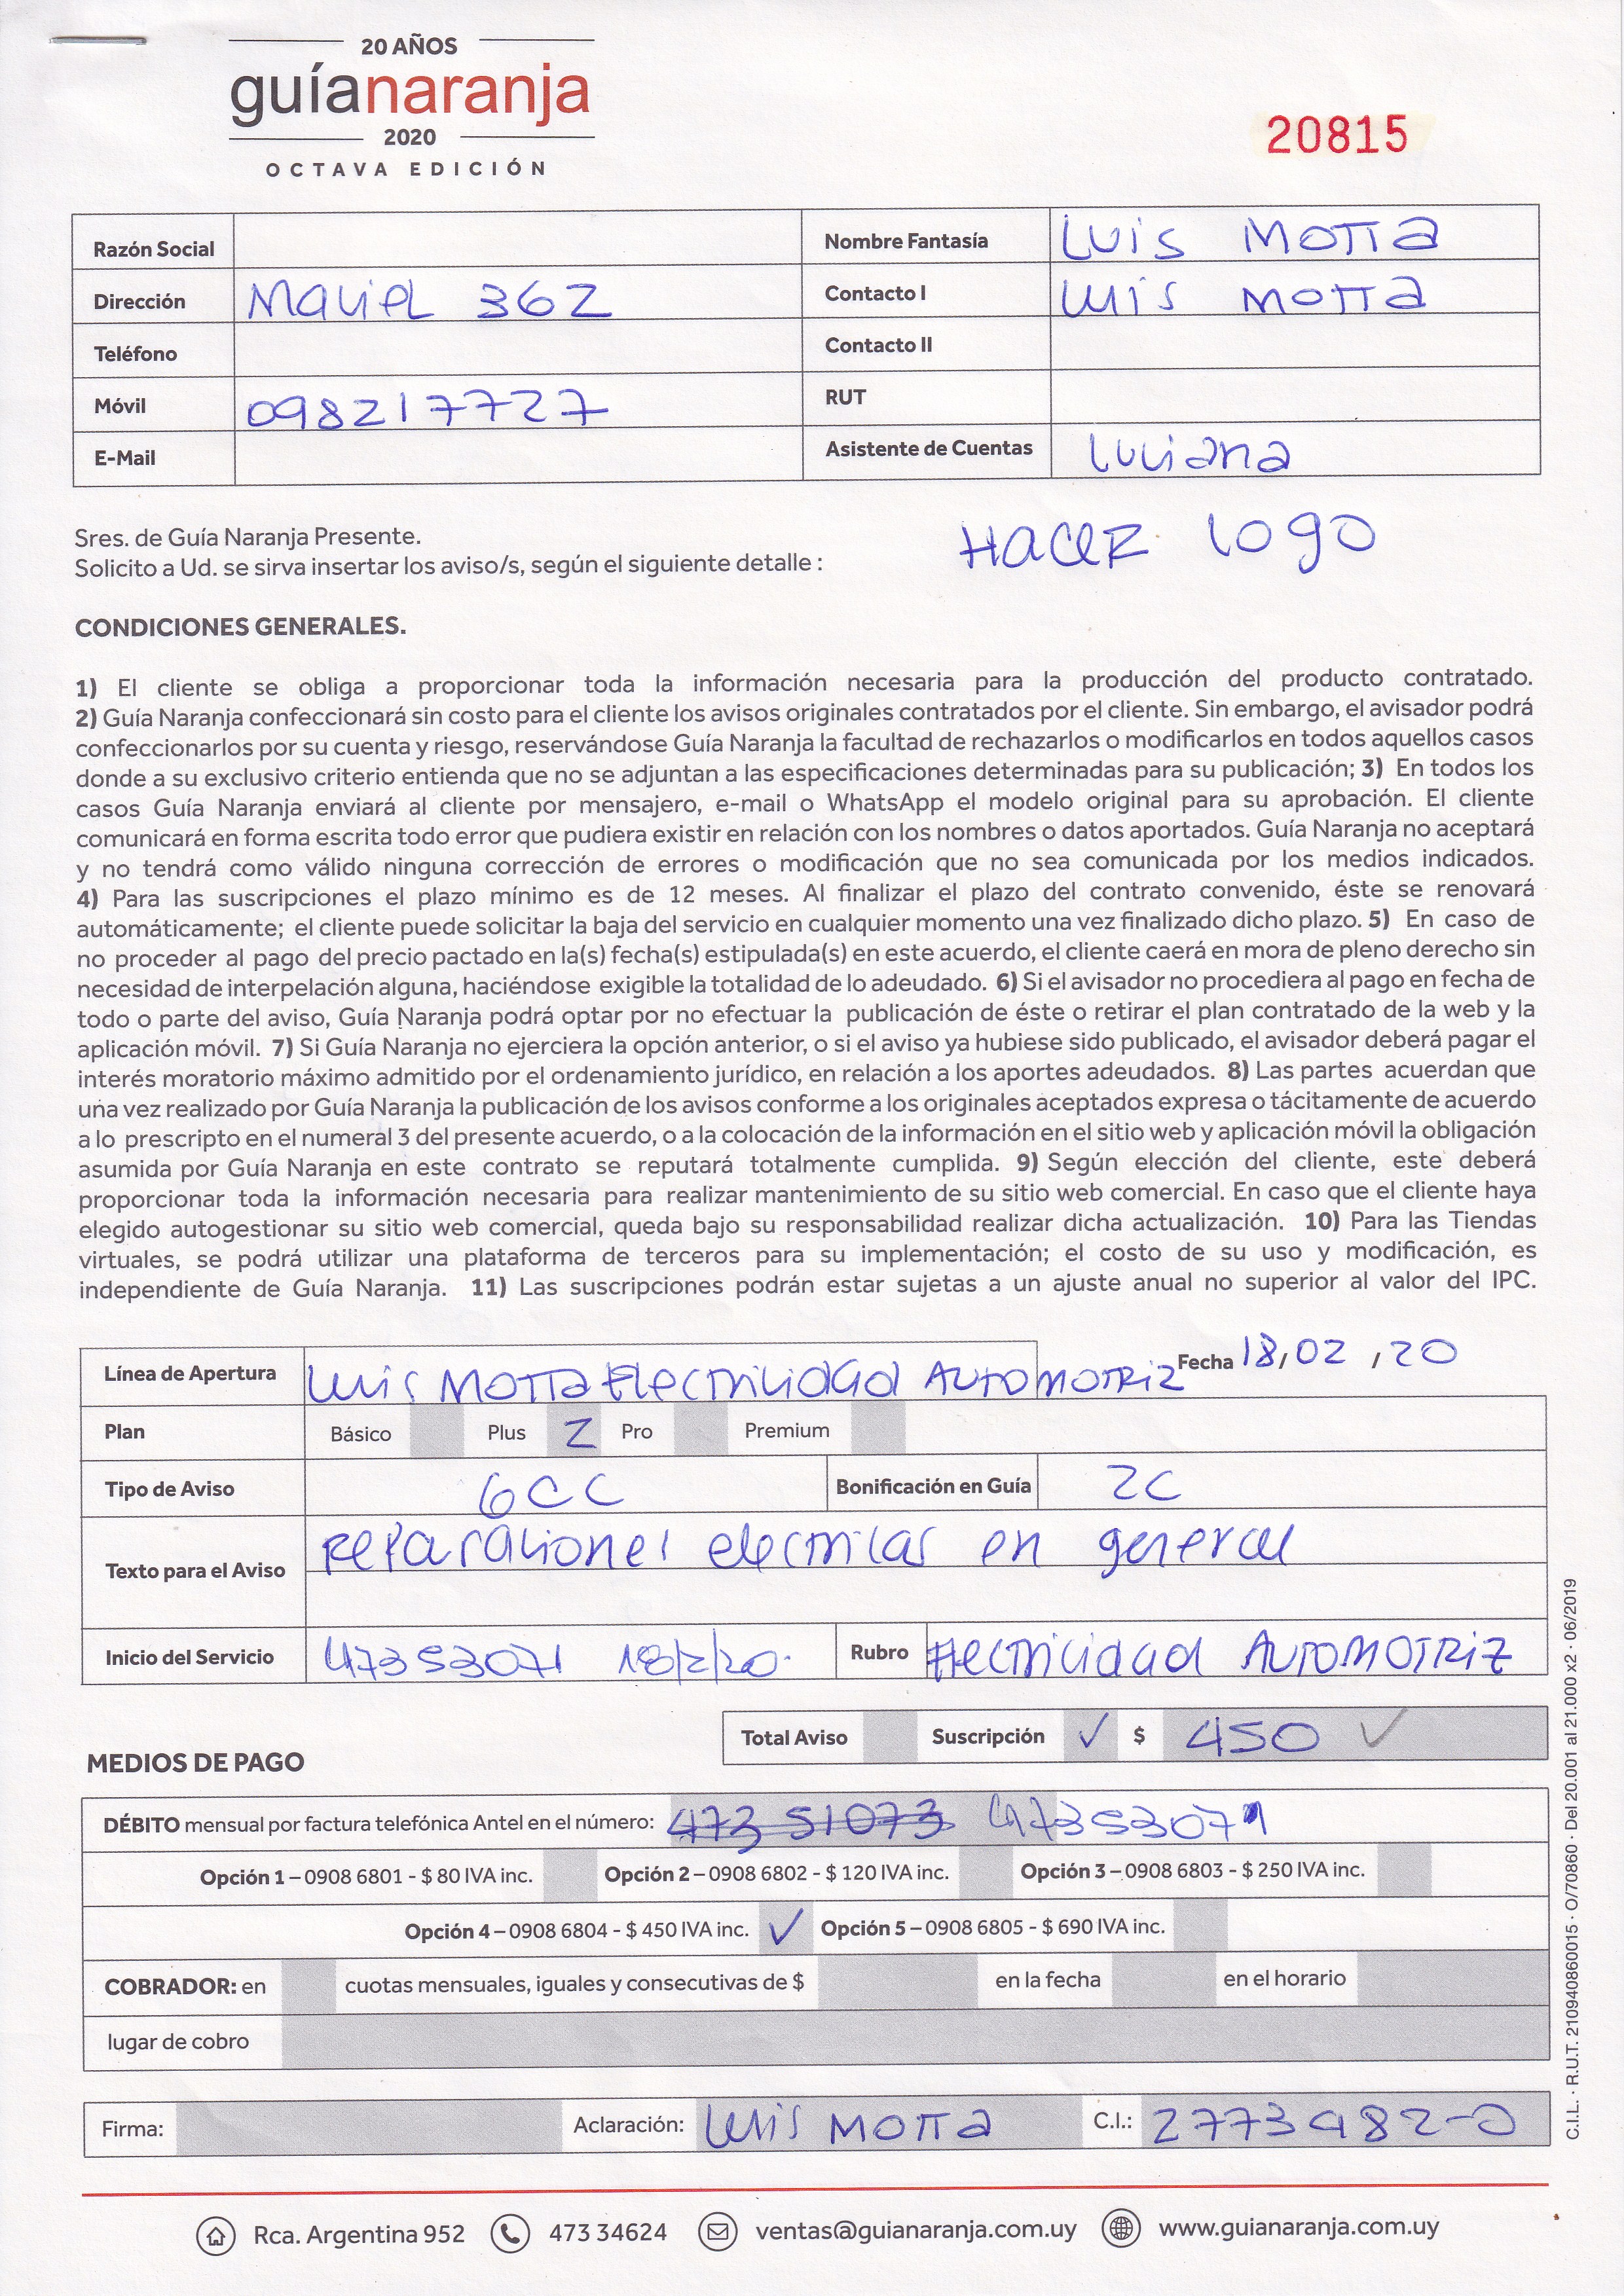 20 AÑOS
guíanaranja
2020
OCTAVA EDICIÓN
20815
Razón Social
Nombre Fantasía LUIS MOTTA
Dirección Maciel 362
Contacto I LUIS MOTTA
Teléfono
Contacto II
Móvil 098217727
RUT
E-Mail
Asistente de Cuentas Luciana
Sres. de Guía Naranja Presente.
Solicito a Ud. se sirva insertar los aviso/s, según el siguiente detalle :
HACER logo
CONDICIONES GENERALES.
1) El cliente se obliga a proporcionar toda la información necesaria para la producción del producto contratado.
2) Guía Naranja confeccionará sin costo para el cliente los avisos originales contratados por el cliente. Sin embargo, el avisador podrá
confeccionarlos por su cuenta y riesgo, reservándose Guía Naranja la facultad de rechazarlos o modificarlos en todos aquellos casos
donde a su exclusivo criterio entienda que no se adjuntan a las especificaciones determinadas para su publicación; 3) En todos los
casos Guía Naranja enviará al cliente por mensajero, e-mail o WhatsApp el modelo original para su aprobación. El cliente
comunicará en forma escrita todo error que pudiera existir en relación con los nombres o datos aportados. Guía Naranja no aceptará
y no tendrá como válido ninguna corrección de errores o modificación que no sea comunicada por los medios indicados.
4) Para las suscripciones el plazo mínimo es de 12 meses. Al finalizar el plazo del contrato convenido, éste se renovará
automáticamente; el cliente puede solicitar la baja del servicio en cualquier momento una vez finalizado dicho plazo. 5) En caso de
no proceder al pago del precio pactado en la(s) fecha(s) estipulada(s) en este acuerdo, el cliente caerá en mora de pleno derecho sin
necesidad de interpelación alguna, haciéndose exigible la totalidad de lo adeudado. 6) Si el avisador no procediera al pago en fecha de
todo o parte del aviso, Guía Naranja podrá optar por no efectuar la publicación de éste o retirar el plan contratado de la web y la
aplicación móvil. 7) Si Guía Naranja no ejerciera la opción anterior, o si el aviso ya hubiese sido publicado, el avisador deberá pagar el
interés moratorio máximo admitido por el ordenamiento jurídico, en relación a los aportes adeudados. 8) Las partes acuerdan que
una vez realizado por Guía Naranja la publicación de los avisos conforme a los originales aceptados expresa o tácitamente de acuerdo
a lo prescripto en el numeral 3 del presente acuerdo, o a la colocación de la información en el sitio web y aplicación móvil la obligación
asumida por Guía Naranja en este contrato se reputará totalmente cumplida. 9) Según elección del cliente, este deberá
proporcionar toda la información necesaria para realizar mantenimiento de su sitio web comercial. En caso que el cliente haya
elegido autogestionar su sitio web comercial, queda bajo su responsabilidad realizar dicha actualización. 10) Para las Tiendas
virtuales, se podrá utilizar una plataforma de terceros para su implementación; el costo de su uso y modificación, es
independiente de Guía Naranja. 11) Las suscripciones podrán estar sujetas a un ajuste anual no superior al valor del IPC.
Línea de Apertura Luis Motta Electricidad Automotriz Fecha 18/02/20
Plan Básico Plus 2 Pro Premium
Tipo de Aviso 6CC Bonificación en Guía 2C
Texto para el Aviso Reparaciones electricas en general
Inicio del Servicio 47353071 18/2/20. Rubro Electricidad Automotriz
Total Aviso Suscripción ✓ $ 450 ✓
MEDIOS DE PAGO
DÉBITO mensual por factura telefónica Antel en el número: 473 51073 47353071
Opción 1 – 0908 6801 - $ 80 IVA inc. Opción 2 – 0908 6802 - $ 120 IVA inc. Opción 3 – 0908 6803 - $ 250 IVA inc.
Opción 4 – 0908 6804 - $ 450 IVA inc. ✓ Opción 5 – 0908 6805 - $ 690 IVA inc.
COBRADOR: en cuotas mensuales, iguales y consecutivas de $ en la fecha en el horario
lugar de cobro
Firma: Aclaración: Luis Motta C.I.: 2773482-0
C.I.L. · R.U.T. 210940860015 · O/70860 · Del 20.001 al 21.000 x2 · 06/2019
Rca. Argentina 952 473 34624 ventas@guianaranja.com.uy www.guianaranja.com.uy